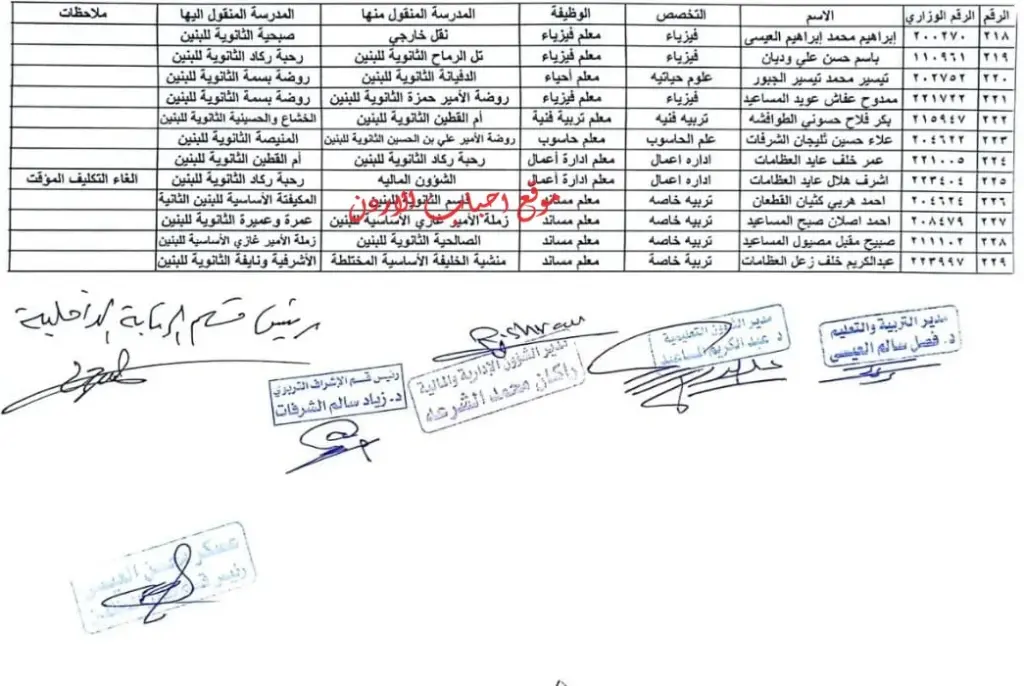 الرقم الرقم الوزاري الاسم التخصص الوظيفة المدرسة المنقول منها المدرسة المنقول اليها ملاحظات
٢١٨ ٢٠٠٢٧٠ إبراهيم محمد إبراهيم العيسى فيزياء معلم فيزياء نقل خارجي صبحية الثانوية للبنين
٢١٩ ١١٠٩٦١ باسم حسن علي وديان فيزياء معلم فيزياء تل الرماح الثانوية للبنين رحبة ركاد الثانوية للبنين
٢٢٠ ٢٠٢٧٥٢ تيسير محمد تيسير الجبور علوم حياتيه معلم أحياء الدفيانة الثانوية للبنين روضة بسمة الثانوية للبنين
٢٢١ ٢٢١٧٢٢ ممدوح عفاش عويد المساعيد فيزياء معلم فيزياء روضة الأمير حمزة الثانوية للبنين روضة بسمة الثانوية للبنين
٢٢٢ ٢١٥٩٤٧ بكر فلاح حسوني الطوافشه تربيه فنيه معلم تربية فنية أم القطين الثانوية للبنين الخشاع والحسينية الثانوية للبنين
٢٢٣ ٢٠٤٦٢٢ علاء حسين ثليجان الشرفات علم الحاسوب معلم حاسوب روضة الأمير علي بن الحسين الثانوية للبنين المنيصة الثانوية للبنين
٢٢٤ ٢٢١٠٠٥ عمر خلف عايد العظامات اداره اعمال معلم ادارة أعمال رحبة ركاد الثانوية للبنين أم القطين الثانوية للبنين
٢٢٥ ٢٢٣٤٠٤ اشرف هلال عايد العظامات اداره اعمال معلم ادارة أعمال الشؤون الماليه رحبة ركاد الثانوية للبنين الغاء التكليف المؤقت
٢٢٦ ٢٠٤٦٢٤ احمد هربي كثيان القطعان تربيه خاصه معلم مساند قاسم الثانوية للبنين المكيفتة الأساسية للبنين الثانية
موقع احباب الاردن
٢٢٧ ٢٠٨٤٧٩ احمد اصلان صبح المساعيد تربيه خاصه معلم مساند زملة الأمير غازي الأساسية للبنين عمرة وعميرة الثانوية للبنين
٢٢٨ ٢١١١٠٢ صبيح مقبل مصبول المساعيد تربيه خاصه معلم مساند الصالحية الثانوية للبنين زملة الأمير غازي الأساسية للبنين
٢٢٩ ٢٢٣٩٩٧ عبدالكريم خلف زعل العظامات تربية خاصة معلم مساند منشية الخليفة الأساسية المختلطة الأشرفية ونايفة الثانوية للبنين
مدير التربية والتعليم
د. فصل سالم العيسى
مدير الشؤون التعليمية
د عبدالكريم المساعيد
مدير الشؤون الإدارية والمالية
راكان محمد الشرعه
رئيس قسم الرقابة الداخلية
رئيس قسم الإشراف التربوي
د. زياد سالم الشرفات